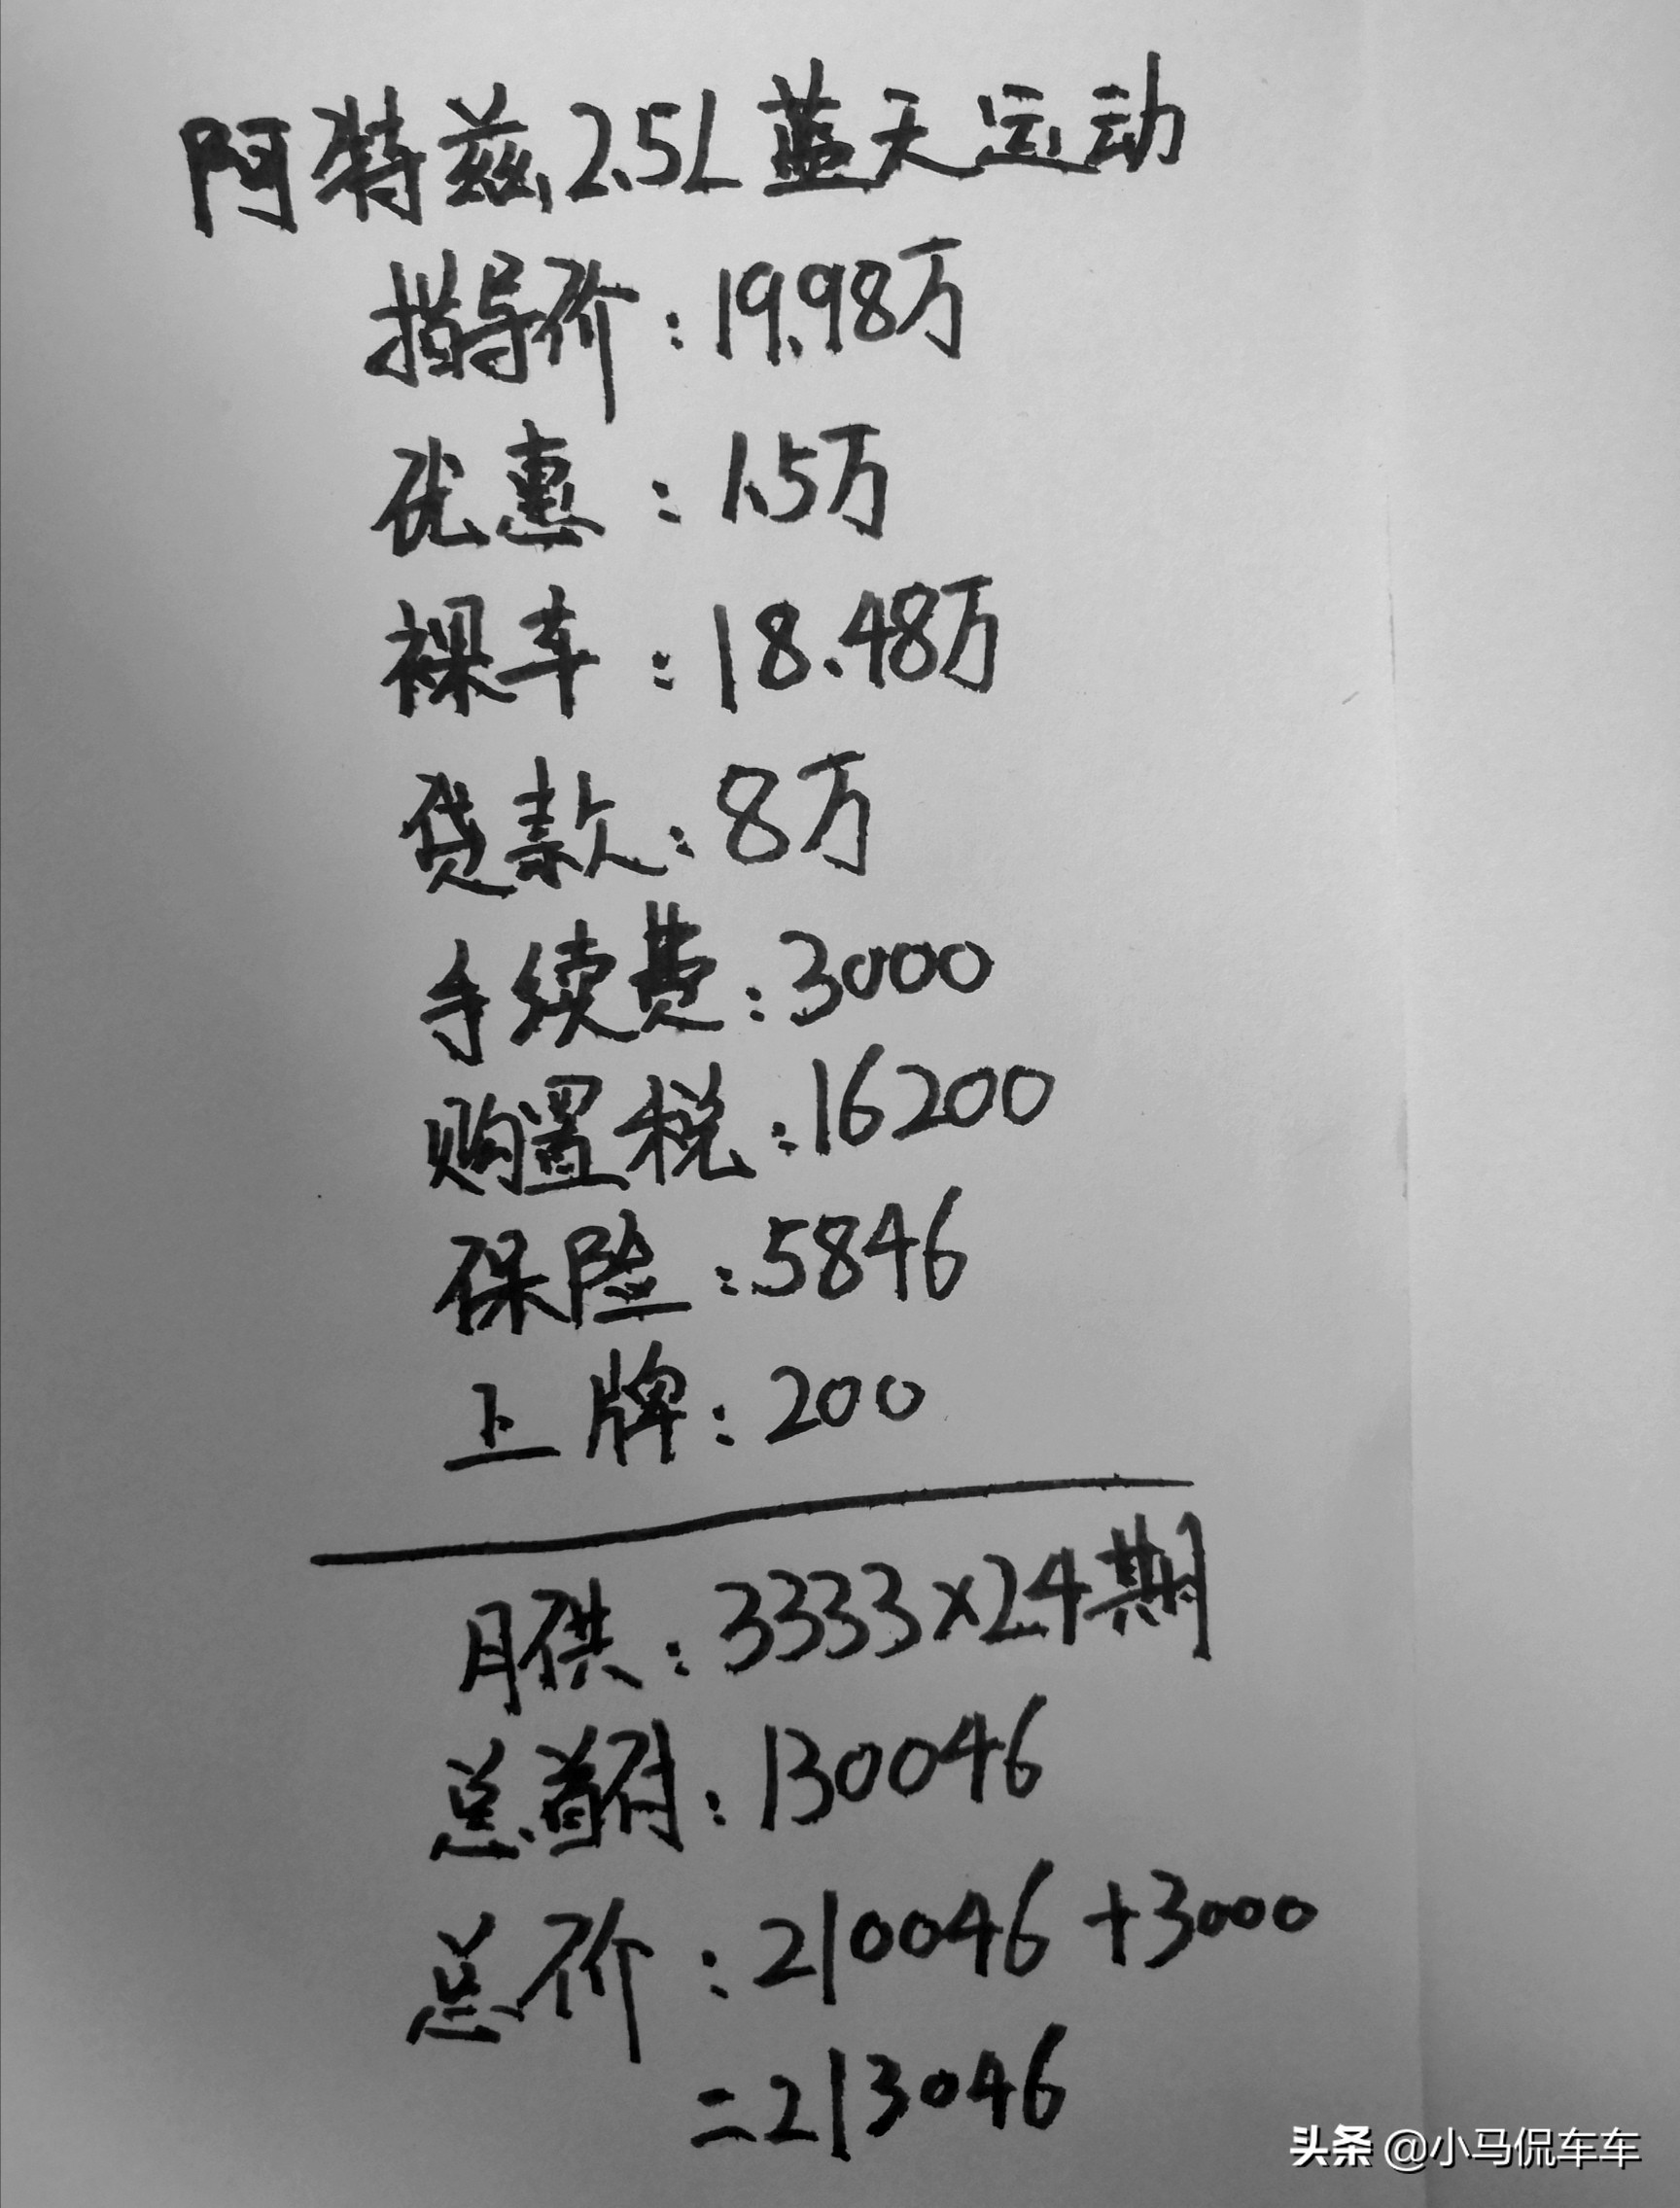 阿特兹2.5L蓝天运动
指导价:19.98万
优惠:1.5万
裸车:18.48万
贷款:8万
手续费:3000
购置税:16200
保险:5846
上牌:200
月供:3333×24期
总首付:130046
总价:210046+3000
=213046
头条 @小马侃车车